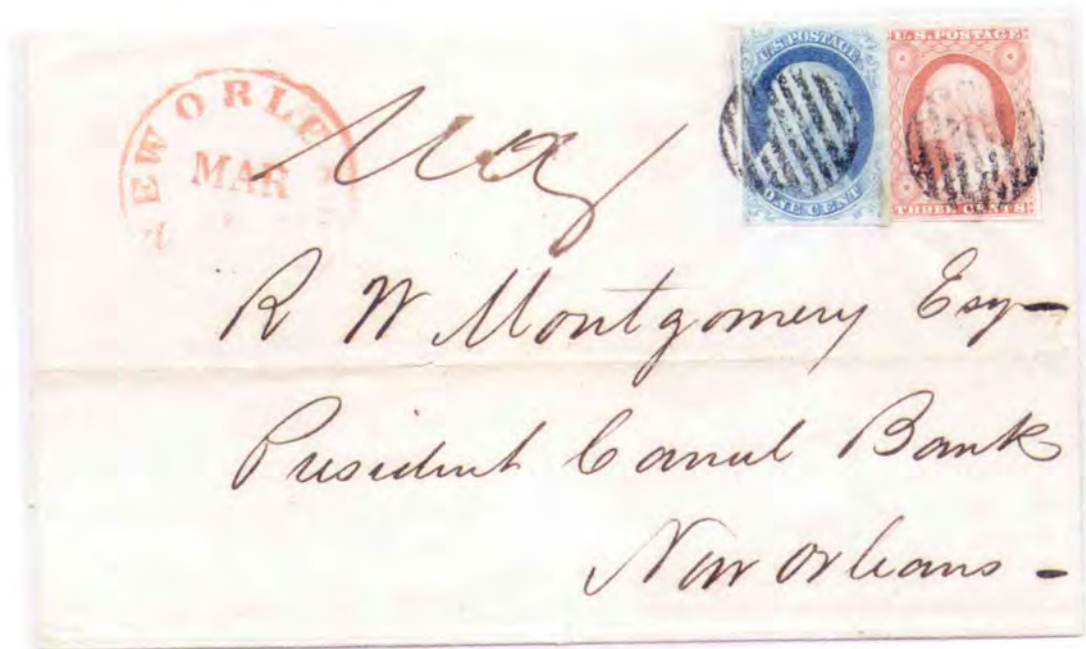 NEW ORLE
MAR
U.S. POSTAGE
ONE CENT
U.S. POSTAGE
THREE CENTS
R W Montgomery Esq-
President Canal Bank
New Orleans -